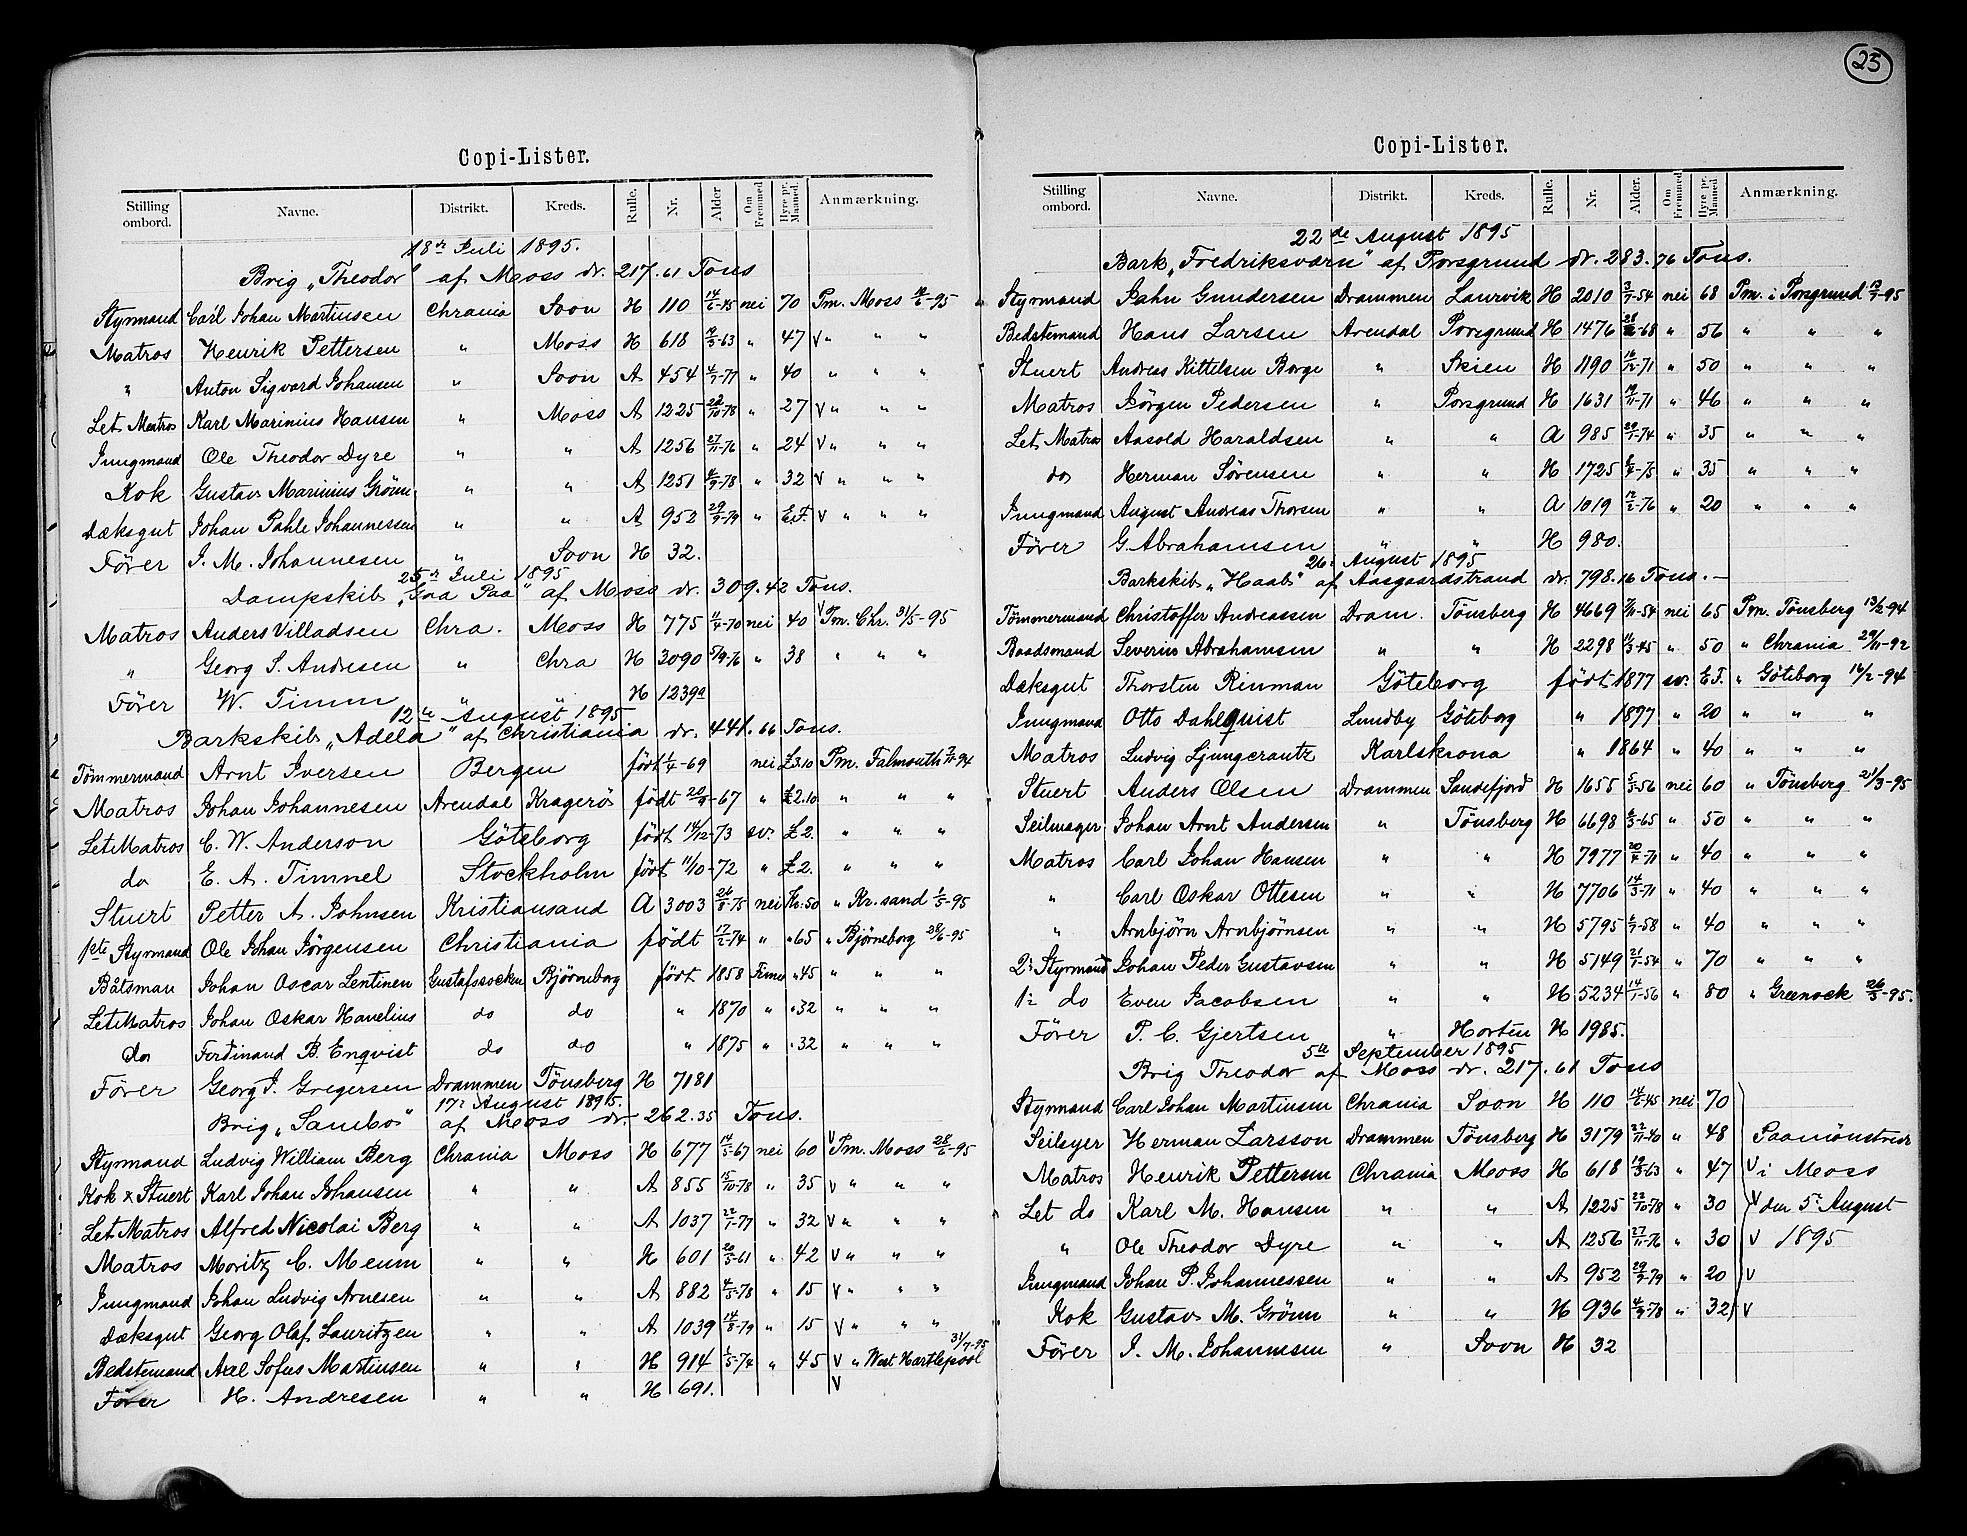 Copi-Lister.
Stilling ombord. Navne. Distrikt. Kreds. Rulle. Nr. Alder Om Fremmed Hyre pr. Maaned. Anmærkning.
18de Juli 1895.
Brig „Theodor“ af Moss dr. 217.61 Tons
Styrmand Carl Johan Martinsen Chrania Soon H 110 14/6-45 nei 70 Pm. Moss 14/6-95
Matros Henrik Pettersen " Moss H 618 19/5-63 " 47 V " " "
" Anton Sigvard Johansen " Soon A 454 4/7-77 " 40 " " "
Let Matros Karl Marinius Hansen " Moss A 1225 22/10-78 " 27 V " " "
Jungmand Ole Theodor Dyre " " A 1256 27/11-76 " 24 V " " "
Kok Gustav Marinius Grönn " " A 1251 4/9-78 " 32 V " " "
Dæksgut Johan Pahle Johannessen " " A 952 29/9-79 " E.F. V " " "
Förer J. M. Johannesen " Soon H 32.
25de Juli 1895
Dampskib „Gaa Paa“ af Moss dr. 309.42 Tons.
Matros Anders Villadsen Chra. Moss H 775 11/4-70 nei 40 V Pm. Chr. 31/5-95
" Georg S. Andresen " Chra H 3090 5/9-76 " 38 " " "
Förer W. Timm " " H 1239a
12te August 1895
Barkskib „Adela“ af Christiania dr. 441.66 Tons.
Tömmermand Arnt Iversen Bergen födt 1/4-69 nei £3.10 Pm. Falmouth -94
Matros Johan Johannesen Arendal Kragerö födt 20/9-67 " £2.10 " " "
Let Matros C. W. Anderson Göteborg födt 14/12-73 sv. £2. " " "
do E. A. Timmel Stockholm födt 11/10-72 " £2. " " "
Stuert Petter A. Johnsen Kristiansand A 3003 26/8-75 nei Kr.50 " Kr.sand 1/5-95
1ste Styrmand Ole Johan Jörgensen Christiania födt 17/2-74 " " 65 " Björneborg 28/6-95
Båtsman Johan Oscar Lentinen Gustafssocken Bjöoneborg födt 1858 Finne " 45 " " "
Let Matros Johan Oskar Hanelius do do " 1870 " " 32 " " "
do Ferdinand B. Enqvist do do " 1875 " " 32 " " "
Förer Georg J. Gregersen Drammen Tönsberg H 7181
17de August 1895.
Brig „Sambo“ af Moss dr. 262.35 Tons.
Styrmand Ludvig William Berg Chrania Moss H 677 14/5-67 nei 60 V Pm. Moss 28/6-95
Kok & Stuert Karl Johan Johansen " " A 855 15/10-78 " 35 V " " "
Let Matros Alfred Nicolai Berg " " A 1037 22/1-77 " 32 V " " "
Matros Moritz C. Meum " " H 601 20/5-61 " 42 V " " "
Jungmand Johan Ludvig Arnesen " " A 882 4/5-78 " 15 V " " "
Dæksgut Georg Olaf Lauritzen " " A 1039 14/8-79 " 15 V " " "
Bedstemand Axel Sofus Martinsen " " H 914 1/5-74 " 45 V " West Hartlepool 31/7-95
Förer H. Andresen " " H 691. V
23
Copi-Lister.
Stilling ombord. Navne. Distrikt. Kreds. Rulle. Nr. Alder. Om Fremmed Hyre pr. Maaned Anmærkning.
22de August 1895
Bark „Fredriksværn“ af Porsgrund dr. 283.76 Tons.
Styrmand Jahn Gundersen Drammen Laurvik H 2010 3/7-54 nei 68 Pm. i Porsgrund 12/7-95
Bedstemand Hans Larsen Arendal Porsgrund H 1476 -68 " 56 " " "
Stuert Andreas Kittelsen Borge " Skien H 1190 16/12-71 " 50 " " "
Matros Jörgen Pedersen " Porsgrund H 1631 19/11-71 " 46 " " "
Let Matros Aasold Haraldsen " " A 985 20/1-74 " 35 " " "
do Herman Sörensen " " H 1725 6/4-75 " 35 " " "
Jungmand August Andreas Thorsen " " A 1019 12/2-76 " 20 " " "
Förer G. Abrahamsen " " H 980.
26. August 1895
Barkskib „Haab“ af Aasgaardstrand dr. 798.16 Tons.—
Tömmermand Christoffer Andreassen Dram. Tönsberg H 4669 7/11-54 nei 65 Pm. Tönsberg 13/2-94
Baadsmand Severin Abrahamsen " " H 2298 11/3-45 " 50 " Chrania 29/11-92
Dæksgut Thorsten Rinman Göteborg födt 1877 sv. E.F. " Göteborg 16/2-94
Jungmand Otto Dahlqvist Lundby Göteborg " 1877 " 20 " " "
Matros Ludvig Ljungcrantz Karlskrona " 1864 " 40 " " "
Stuert Anders Olsen Drammen Sandefjord H 1655 5/5-56 nei 60 " Tönsberg 21/3-95
Seilmager Johan Arnt Andersen " Tönsberg H 6698 6/3-65 " 50 " " "
Matros Carl Johan Hansen " " H 7977 20/4-71 " 40 " " "
" Carl Oskar Ottesen " " H 7706 14/3-71 " 40 " " "
" Arnbjörn Arnbjörnsen " " H 5795 6/9-58 " 40 " " "
2. Styrmand Johan Peder Gustavsen " " H 5149 21/1-54 " 70 " " "
1. do Even Jacobsen " " H 5234 14/1-56 " 80 " Greenock 26/3-95.
Förer P. C. Gjertsen " Horten H 1985.
5te September 1895
Brig Theodor af Moss dr. 217.61 Tons
Styrmand Carl Johan Martinsen Chrania Soon H 110 14/6-45 nei 70
Seilsyer Herman Larsson Drammen Tönsberg H 3179 22/11-40 " 48 Paamönstrede
Matros Henrik Pettersen Chrania Moss H 618 19/5-63 " 47 V i Moss
Let do Karl M. Hansen " " A 1225 22/10-78 " 30 V den 5te August
" Ole Theodor Dyre " " A 1256 27/11-76 " 30 V 1895
Jungmand Johan P. Johannessen " " A 952 29/9-79 " 20 V
Kok Gustav M. Grönn " " H 936 4/9-78 " 32 V
Förer J. M. Johannesen " Soon H 32